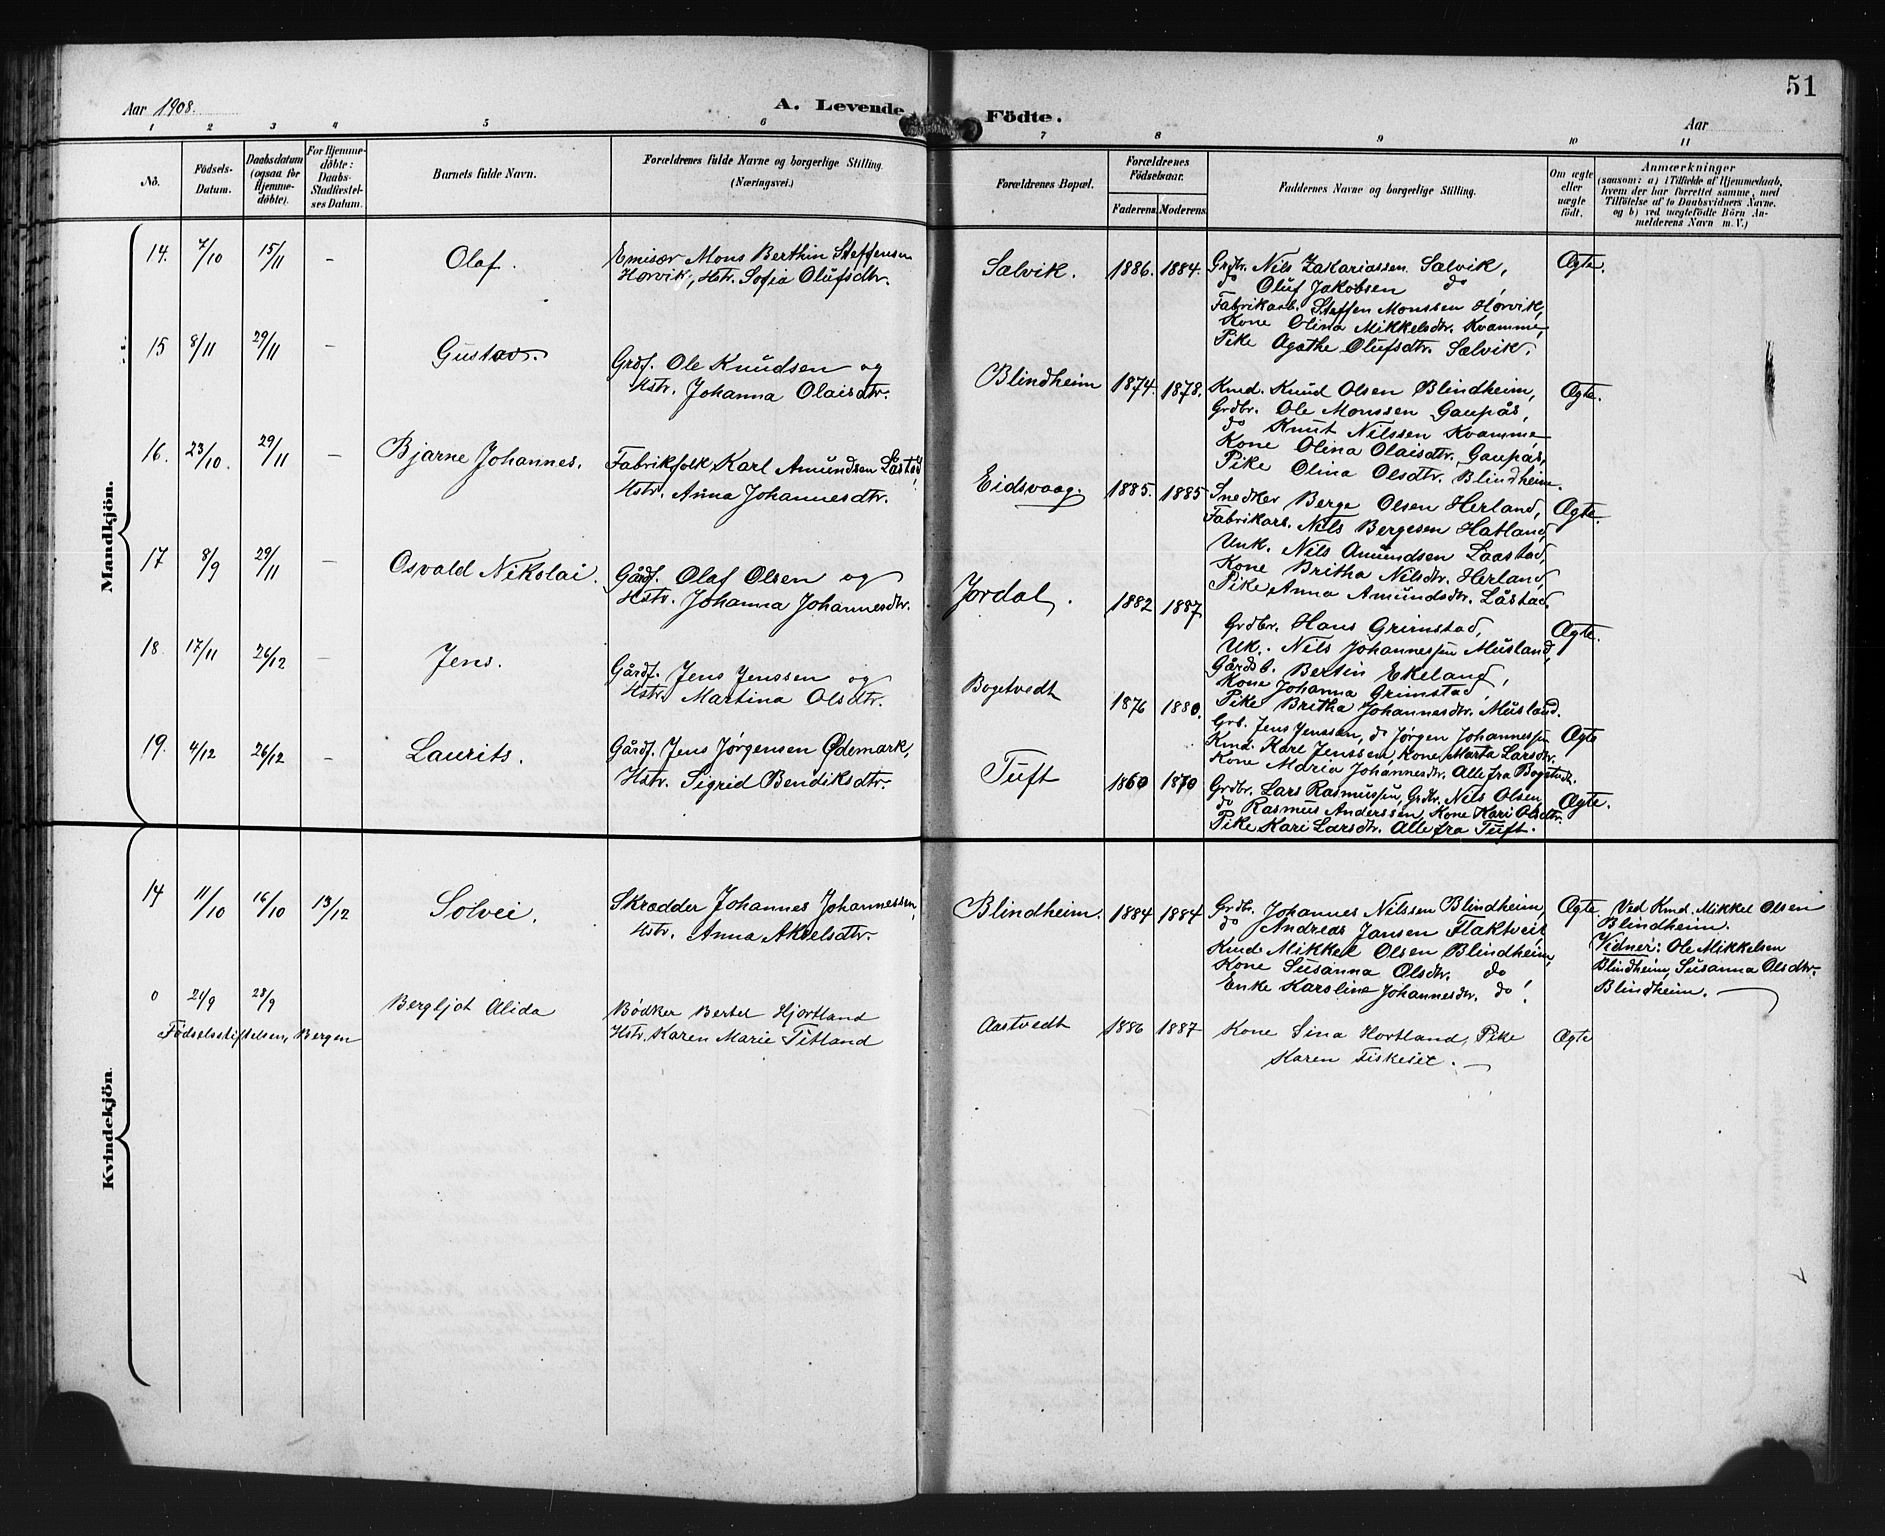 51
Aar 1908.
A. Levende
Födte.
Aar
1 2 3 4 5 6 7 8 9 10 11
No.
Födsels-Datum.
Daabsdatum (ogsaa for Hjemme-döbte).
For Hjemme-döbte: Daabs-Stadfæstel-ses Datum.
Barnets fulde Navn.
Forældrenes fulde Navne og borgerlige Stilling. (Næringsvei.)
Forældrenes Bopæl.
Forældrenes Födselsaar.
Faderens. Moderens.
Faddernes Navne og borgerlige Stilling.
Om ægte eller uægte födt.
Anmærkninger
(saasom: a) i Tilfælde af Hjemmedaab,
hvem der har forrettet samme, med
Tilföielse af to Daabsvidners Navne.
og b) ved uægtefödte Börn An-
melderens Navn m. V.)
Mandkjön.
14. 7/10 15/11 – Olaf.
Emisær Mons Berthin Steffensen
Horvik, Hstr. Sofia Olufsdtr.
Salvik. 1886. 1884.
Grdbr. Nils Zakariassen Salvik,
do Oluf Jakobsen do,
Fabrikarb. Steffen Monssen Horvik,
Kone Olina Mikkelsdtr. Kvamme,
Pike Agathe Olufsdtr. Salvik.
Ægte.
15 8/11 29/11 – Gustav.
Grdf. Ole Knudsen og
Hstr. Johanna Olaisdtr.
Blindheim 1874. 1878.
Kmd. Knud Olsen Blindheim,
Grdbr. Ole Monssen Gaupås,
do Knut Nilssen Kvamme
Kone Olina Olaisdtr. Gaupås,
Pike Olina Olsdtr. Blindheim.
Ægte.
16. 23/10. 29/11 – Bjarne Johannes.
Fabrikfolk Karl Amundsen Låstad,
Hstr. Anna Johannesdtr.
Eidsvaag. 1885. 1885
Snedker Berge Olsen Herland,
Fabrikarb. Nils Bergesen Hatland,
Unk. Nils Amundsen Laastad,
Kone Britha Nilsdtr. Herland,
Pike Anna Amundsdtr. Låstad.
Ægte.
17 8/9 29/11 – Osvald Nikolai.
Gårdf. Olaf Olsen og
Hstr. Johanna Johannesdtr.
Jordal. 1882 1887
Grdbr. Hans Grimstad,
Uk. Nils Johannessen Musland,
Gårdsb. Bertin Ekeland,
Kone Johanna Grimstad,
Pike Britha Johannesdtr. Musland.
Ægte.
18. 17/11 26/12 – Jens.
Gårdf. Jens Jenssen og
Hstr. Martina Olsdtr.
Bogetvedt 1876 1880.
Grb. Jens Jenssen, do Jörgen Johannessen
Kmd. Kare Jenssen, Kone Marta Larsdtr.
Kone Maria Johannesdtr. Alle fra Bogetvedt.
Ægte
19. 4/12 26/12 – Laurits.
Gårdf. Jens Jørgensen Ødemark,
Hstr. Sigrid Bendiksdtr.
Tuft 1860 1870
Grdbr. Lars Rasmussen, Grdbr. Nils Olsen,
do Rasmus Anderssen, Kone Kari Olsdtr.
Pike Kari Larsdtr. Alle fra Tuft.
Ægte.
Kvindekjön.
14 11/10 16/10 13/12 Solvei.
Skrædder Johannes Johannessen,
Hstr. Anna Akselsdtr.
Blindheim. 1884 1884
Grdbr. Johannes Nilssen Blindheim,
do Andreas Jansen Flaktveit
Kmd Mikkel Olsen Blindheim,
Kone Susanna Olsdtr. do
Enke Karoline Johannesdtr. do.
Ægte.
Ved Kmd. Mikkel Olsen
Blindheim.
Vidner: Ole Mikkelsen
Blindheim, Susanna Olsdtr.
Blindheim.
0 21/9 28/9 Bergljot Alida
Födselsstiftelsen, Bergen
Bødker Bertel Hjortland
Hstr. Karen Marie Titland
Aastvedt 1886 1887
Kone Sina Hortland, Pike
Karen Fiskeset.
Ægte